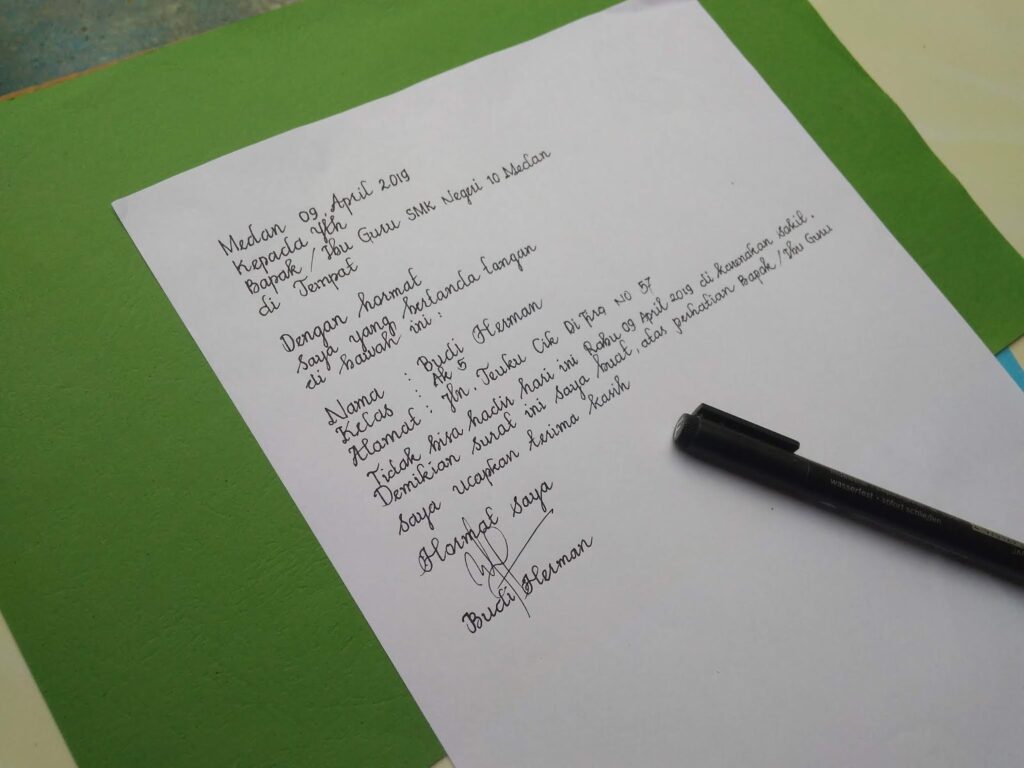 Medan 09, April 2019
Kepada Yth
Bapak / Ibu Guru SMK Negeri 10 Medan
di Tempat
Dengan hormat
saya yang bertanda tangan
di bawah ini :
Nama : Budi Herman
Kelas : AK 5
Alamat : Jln. Teuku Cik Di Tiro NO 57
Tidak bisa hadir hari ini Rabu 09 April 2019 di karenakan sakit.
Demikian surat ini saya buat, atas perhatian Bapak / Ibu Guru
saya ucapkan terima kasih
Hormat saya
Budi Herman
wasserfest - sofort schreiben